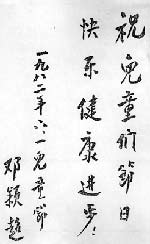 祝儿童们節日
快乐健康进步！
一九八二年六一儿童節
邓颖超